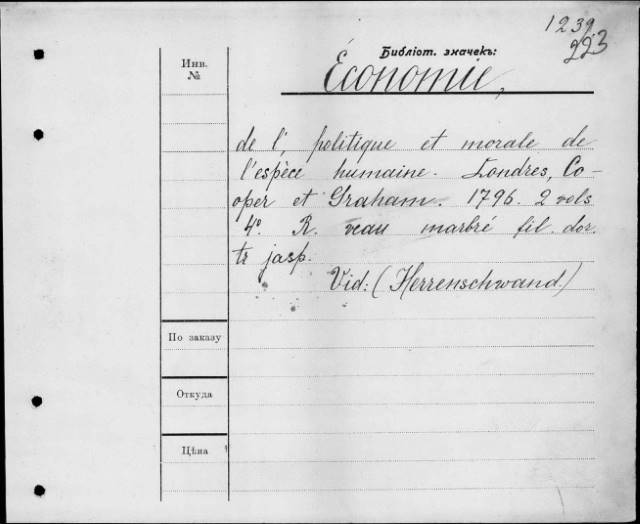 1239.
223
Библіот. значекъ:
Инв.
№
Économie,
de l', politique et morale de
l'espèce humaine. Londres, Co-
oper et Graham. 1796. 2 vols
4º. R. veau marbré fil. dor.
tr jasp.
Vid: (Herrenschwand.)
По заказу
Откуда
Цѣна